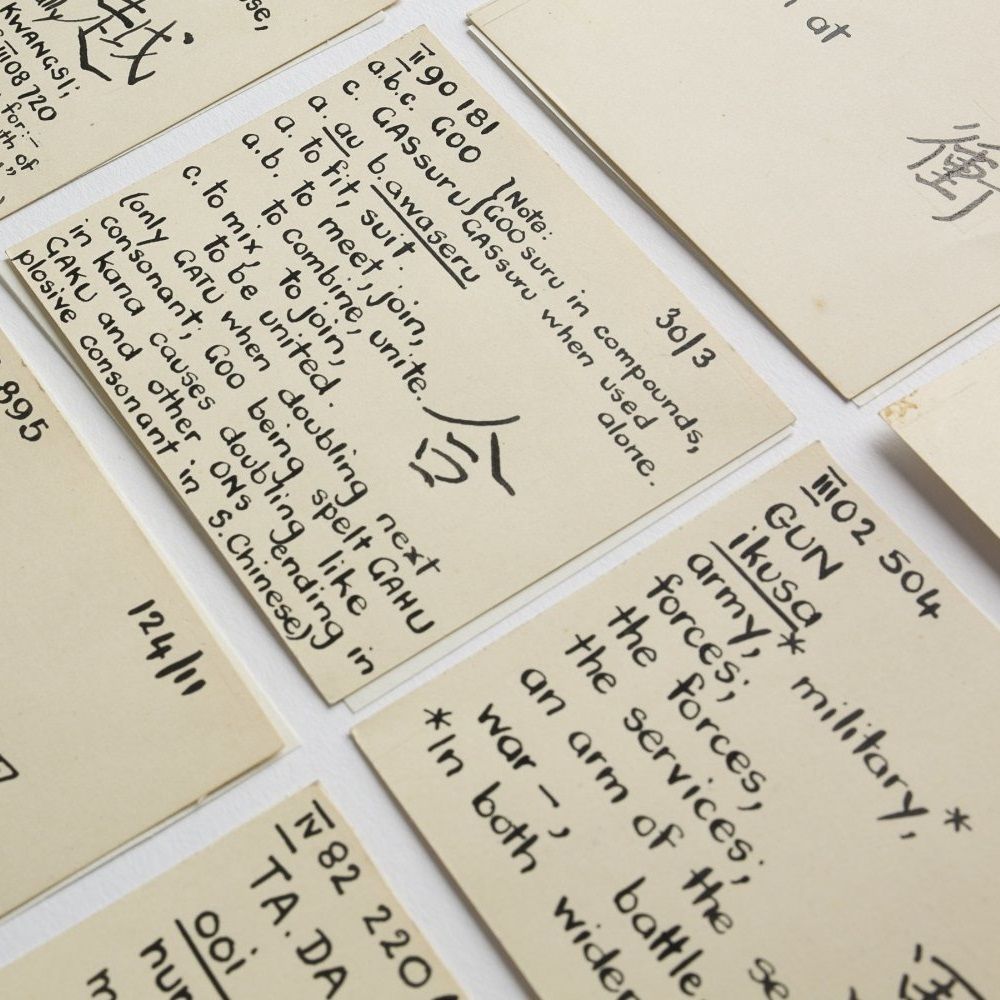 越
KWANGSI;
III 08 720
for:-
th of
at
衝
II 90 181
a.b.c. GOO
c. GASSURU
}Note:
GOO suru in compounds,
GASSURU when used
alone.
a. au b. awaseru
a. to fit, suit.
a.b. to meet, join,
to combine, unite.
c. to mix, to join,
to be united.
(only GATU when doubling next
consonant; GOO being spelt GAHU
in kana causes doubling like
GAKU and other ONs ending in
plosive consonant in S.Chinese)
30/3
合
895
124/11
III 02 504
GUN
ikusa
army,* military,*
forces;
the forces,
the services;
an arm of the se
war-, battle
*In both wider
IV 82 220
TA. DA
ooi